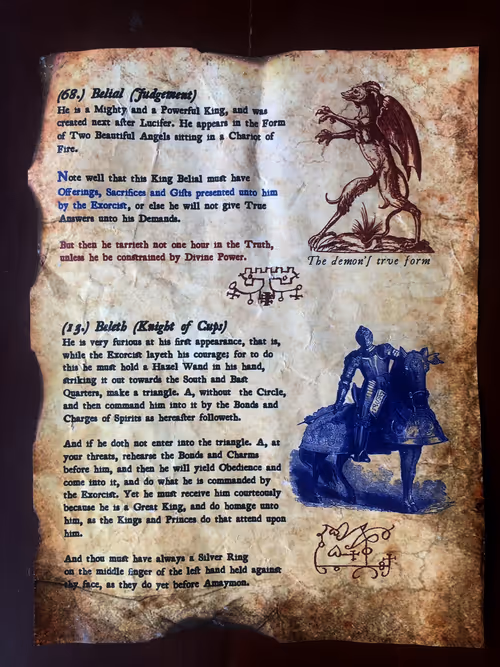 (68.) Belial (Judgement)
He is a Mighty and a Powerful King, and was
created next after Lucifer. He appears in the Form
of Two Beautiful Angels sitting in a Chariot of
Fire.
Note well that this King Belial must have
Offerings, Sacrifices and Gifts presented unto him
by the Exorcist, or else he will not give True
Answers unto his Demands.
But then he tarrieth not one hour in the Truth,
unless he be constrained by Divine Power.
The demon's trve form
(13.) Beleth (Knight of Cups)
He is very furious at his first appearance, that is,
while the Exorcist layeth his courage; for to do
this he must hold a Hazel Wand in his hand,
striking it out towards the South and East
Quarters, make a triangle. A, without the Circle,
and then command him into it by the Bonds and
Charges of Spirits as hereafter followeth.
And if he doth not enter into the triangle. A, at
your threats, rehearse the Bonds and Charms
before him, and then he will yield Obedience and
come into it, and do what he is commanded by
the Exorcist. Yet he must receive him courteously
because he is a Great King, and do homage unto
him, as the Kings and Princes do that attend upon
him.
And thou must have always a Silver Ring
on the middle finger of the left hand held against
thy face, as they do yet before Amaymon.